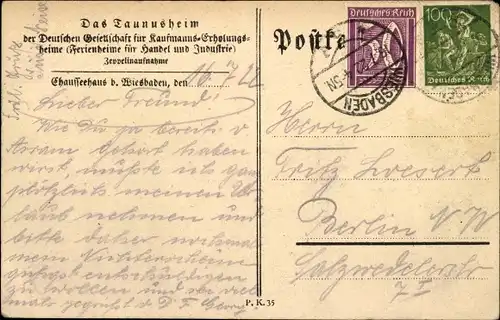 Das Taunusheim
der Deutschen Gesellschaft für Kaufmanns-Erholungs-
heime (Ferienheime für Handel und Industrie)
Zeppelinaufnahme
Chausseehaus b. Wiesbaden, den 16.7.22
Lieber Freund!
Wie Du ja bereits v
gehört haben
wirst, mußte ich ganz
plötzlich meinen Ur
laub nehmen und
bitte daher nochmals
mein
gütigst entschuldigen
zu wollen und sei viel
mals gegrüßt v D F Georg
P. K. 35
Postka
Deutsches Reich
100
Deutsches Reich
WIESBADEN
Herrn
Fritz
Berlin N.W
Salzwedelerstr
7 I